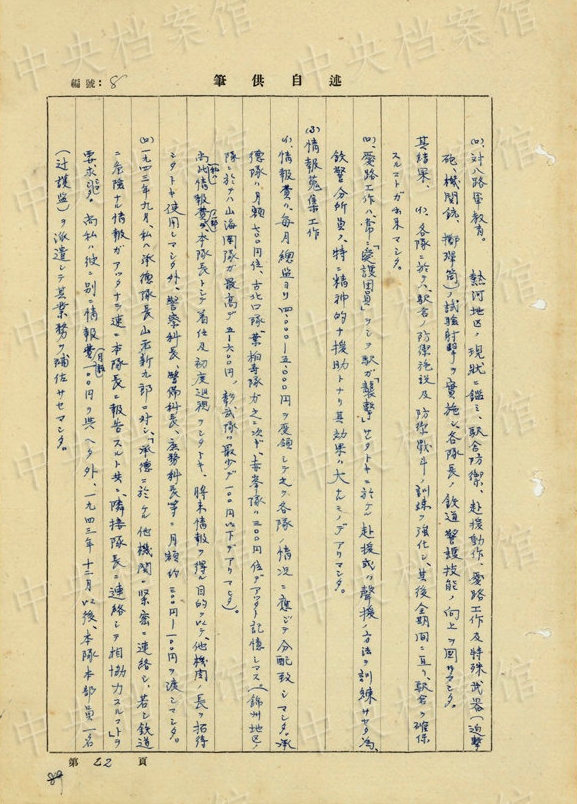 編號：8
筆供自述
(四)、対八路軍教育。　熱河地区ノ現状ニ鑑ミ、駅舎防禦、赴援動作、愛路工作及特殊武器（迫撃
砲、機関銃、擲弾筒）ノ試験射撃ヲ実施シ各隊長ノ鉄道警護技能ノ向上ヲ図リマシタ。
其結果、(1)、各隊ニ於テハ駅舎ノ防禦施設及防禦戦斗ノ訓練ヲ強化シ、其後全期間ニ亘リ駅舎ヲ確保
スルコトガ出来マシタ。
愛路工作ハ常ニ「愛護団員」ヲシテ駅ガ「襲撃」サレタトキニ於ケル赴援或ハ聲援ノ方法ヲ訓練サセタ為、
鉄警分所員ハ特ニ精神的ナ援助トナリ其効果ハ大ナルモノデアリマシタ。
(3)情報蒐集工作
(1)、情報費ハ毎月總監ヨリ四.〇〇〇―五.〇〇〇円ヲ受領シテ之ヲ各隊ノ情况ニ應ジテ分配致シマシタ。承
德隊ハ月額七〇〇円位、古北口隊葉柏寿隊カ之ニ次ギ、赤峯隊ハ三〇〇円位デアッタト記憶シマス（錦州地区ノ
隊ニ於テハ山海関隊ガ最高デ五―六〇〇円、彰武隊ハ最少デ一〇〇円以下デアリマシタ）。
尚私ハ此情報費ノ一部ヲ本隊長トシテ着任及初度巡視ヲシタトキ、將来情報ヲ得ル目的ヲ以テ、他機関ノ長ヲ招待
シタトキ使用シマシタ外、警察科長、警備科長、庶務科長等ニ月額約三〇〇円―一〇〇円ヲ渡シマシタ。
一九四三年九月私ハ承德隊長山宏新九郎ニ対シ、「承德ニ於ケル他機関ト緊密ニ連絡シ、若シ鉄道
ニ危険ナル情報ガアッタナラ速ニ本隊長ニ報告スルト共ニ、隣接隊長ニ連絡シテ相協力スルコト」ヲ
要求シタ。尚私ハ彼ニ別ニ情報費月額一〇〇円ヲ與ヘタ外、一九四三年十二月以後、本隊本部員一名
（辻護監）ヲ派遣シテ其業務ヲ補佐サセマシタ。
第 22 頁
中央档案馆